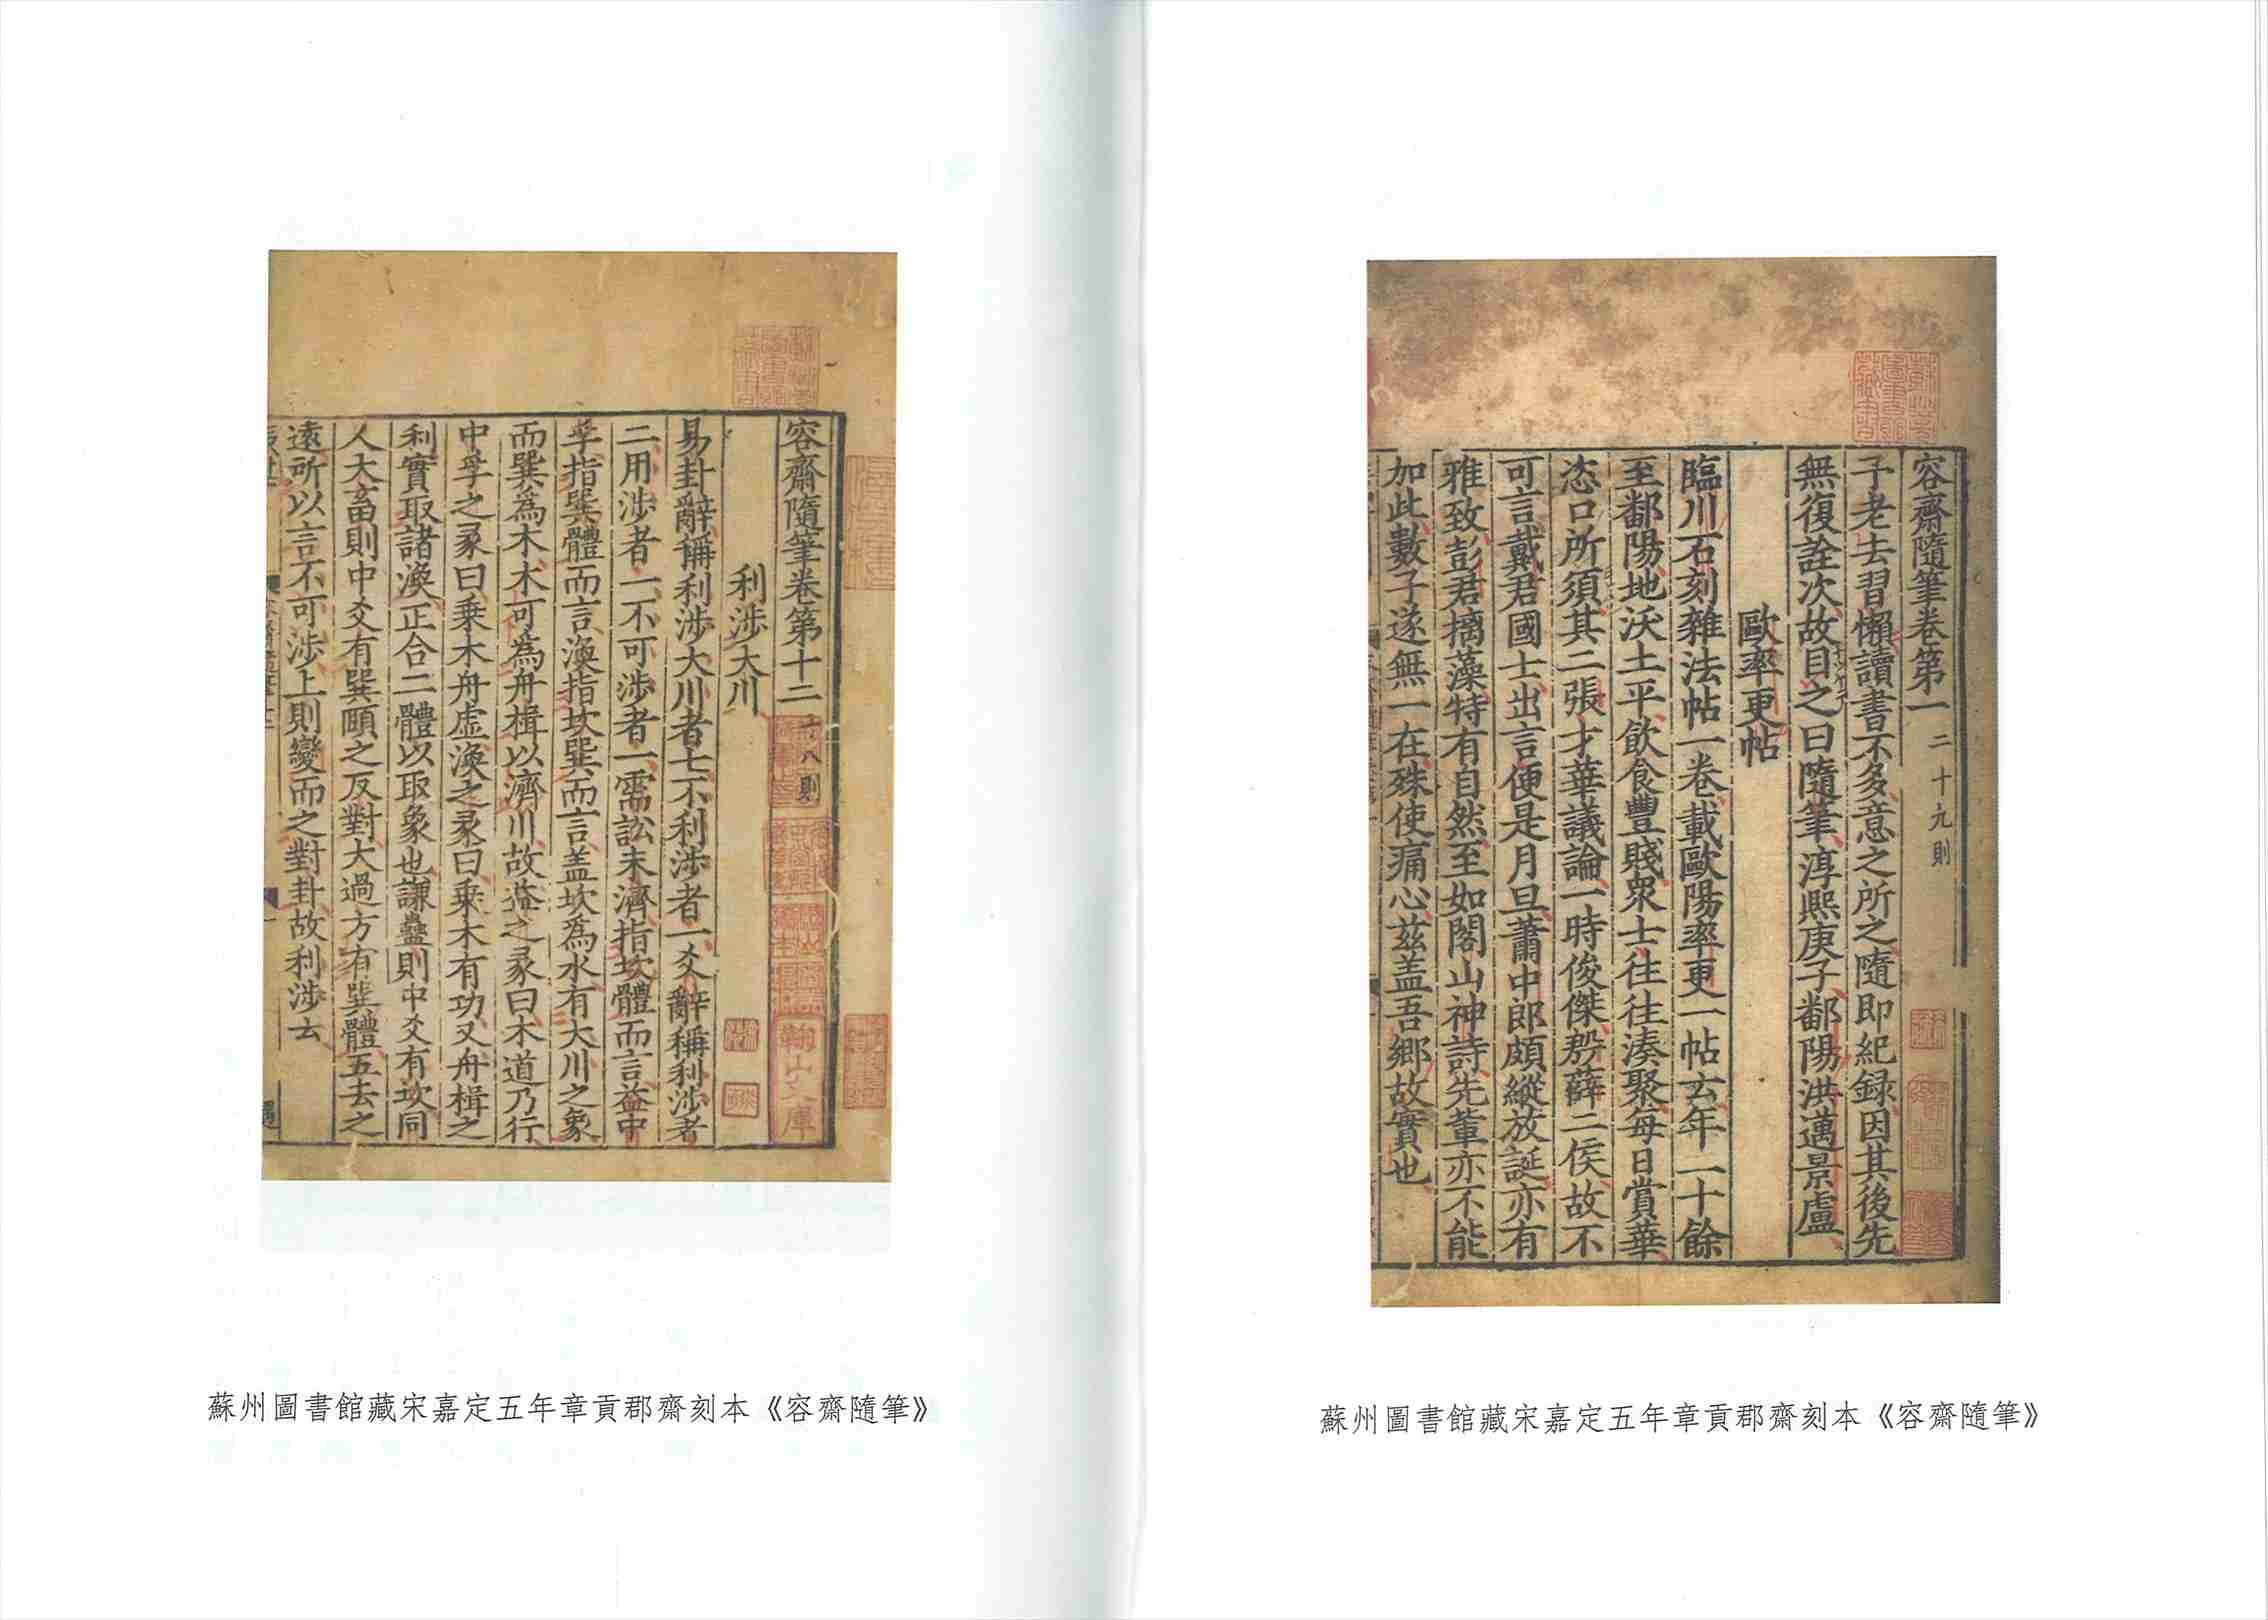 容齋隨筆卷第一 二十九則
予老去習懶讀書不多意之所之隨即紀録因其後先
無復詮次故目之曰隨筆淳熙庚子鄱陽洪邁景盧
歐率更帖
臨川石刻雜法帖一卷載歐陽率更一帖云年二十餘
至鄱陽地沃土平飲食豐賤衆士往往湊聚每日賞華
恣口所須其二張才華議論一時俊傑殷薛二侯故不
可言戴君國士出言便是月旦蕭中郎頗縱放誕亦有
雅致彭君摛藻特有自然至如閣山神詩先輩亦不能
加此數子遂無一在殊使痛心兹盖吾郷故實也
蘇州圖書館藏宋嘉定五年章貢郡齋刻本《容齋隨筆》
容齋隨筆卷第十二 十八則
利涉大川
易卦辭稱利涉大川者七不利涉者一爻辭稱利涉者
二用涉者一不可涉者一需訟未濟指坎體而言益中
孚指巽體而言渙指坎巽而言盖坎爲水有大川之象
而巽爲木木可爲舟楫以濟川故益之彖曰木道乃行
中孚之彖曰乗木舟虛渙之彖曰乗木有功又舟楫之
利實取諸渙正合二體以取象也謙蠱則中爻有坎同
人大畜則中爻有巽頤之反對大過方有巽體五去之
遠所以言不可渉上則變而之對卦故利渉云
鞠山文庫
蘇州圖書館藏宋嘉定五年章貢郡齋刻本《容齋隨筆》